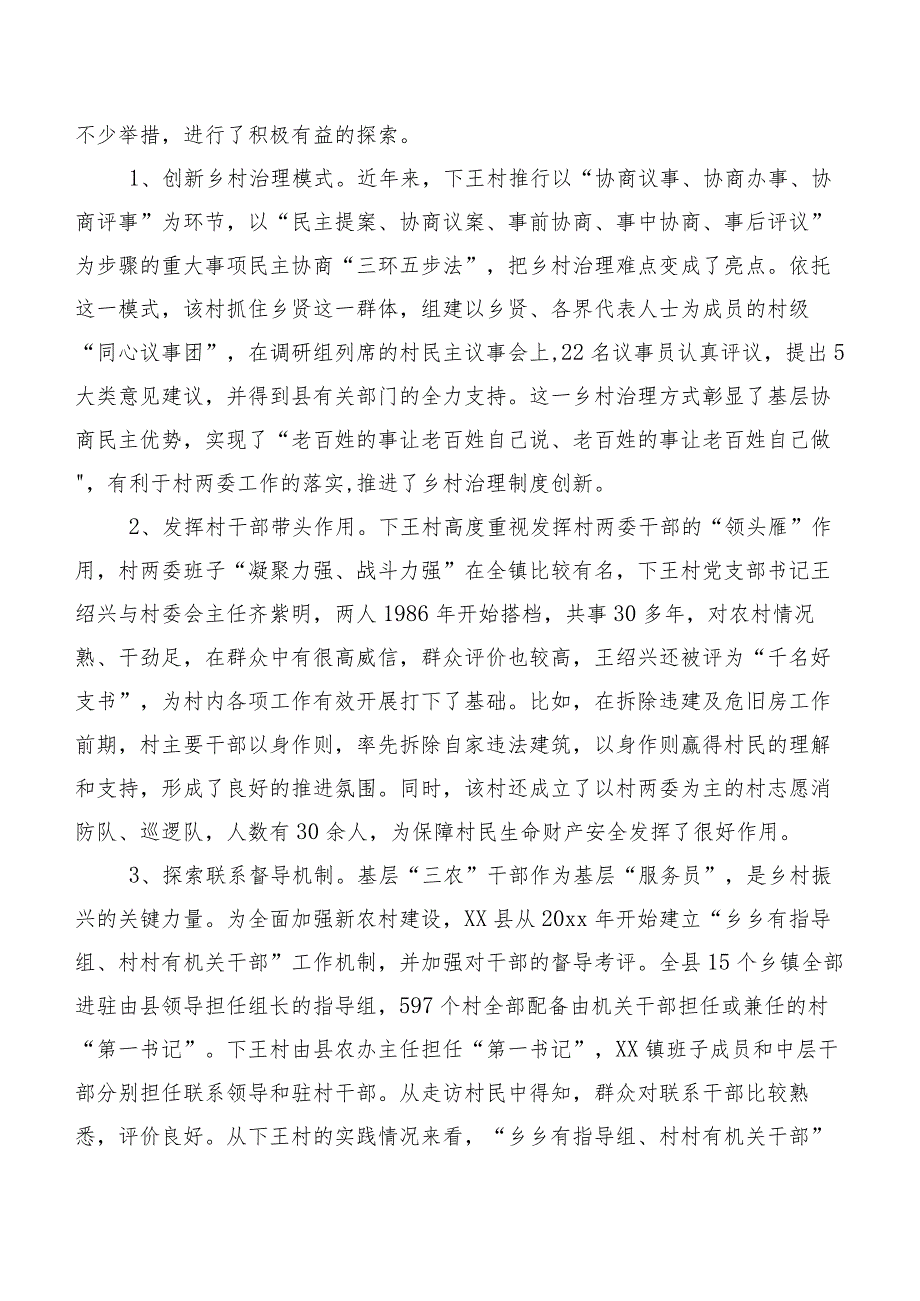 不少举措，进行了积极有益的探索。
1、创新乡村治理模式。近年来，下王村推行以“协商议事、协商办事、协
商评事”为环节，以“民主提案、协商议案、事前协商、事中协商、事后评议”
为步骤的重大事项民主协商“三环五步法”，把乡村治理难点变成了亮点。依托
这一模式，该村抓住乡贤这一群体，组建以乡贤、各界代表人士为成员的村级
“同心议事团”，在调研组列席的村民主议事会上,22 名议事员认真评议，提出 5
大类意见建议，并得到县有关部门的全力支持。这一乡村治理方式彰显了基层协
商民主优势，实现了“老百姓的事让老百姓自己说、老百姓的事让老百姓自己做
"，有利于村两委工作的落实,推进了乡村治理制度创新。
2、发挥村干部带头作用。下王村高度重视发挥村两委干部的“领头雁”作
用，村两委班子“凝聚力强、战斗力强”在全镇比较有名，下王村党支部书记王
绍兴与村委会主任齐紫明，两人 1986 年开始搭档，共事 30 多年，对农村情况
熟、干劲足，在群众中有很高威信，群众评价也较高，王绍兴还被评为“千名好
支书”，为村内各项工作有效开展打下了基础。比如，在拆除违建及危旧房工作
前期，村主要干部以身作则，率先拆除自家违法建筑，以身作则赢得村民的理解
和支持，形成了良好的推进氛围。同时，该村还成立了以村两委为主的村志愿消
防队、巡逻队，人数有 30 余人，为保障村民生命财产安全发挥了很好作用。
3、探索联系督导机制。基层“三农”干部作为基层“服务员”，是乡村振
兴的关键力量。为全面加强新农村建设，XX 县从 20xx 年开始建立“乡乡有指导
组、村村有机关干部”工作机制，并加强对干部的督导考评。全县 15 个乡镇全部
进驻由县领导担任组长的指导组，597 个村全部配备由机关干部担任或兼任的村
“第一书记”。下王村由县农办主任担任“第一书记”，XX 镇班子成员和中层干
部分别担任联系领导和驻村干部。从走访村民中得知，群众对联系干部比较熟
悉，评价良好。从下王村的实践情况来看，“乡乡有指导组、村村有机关干部”